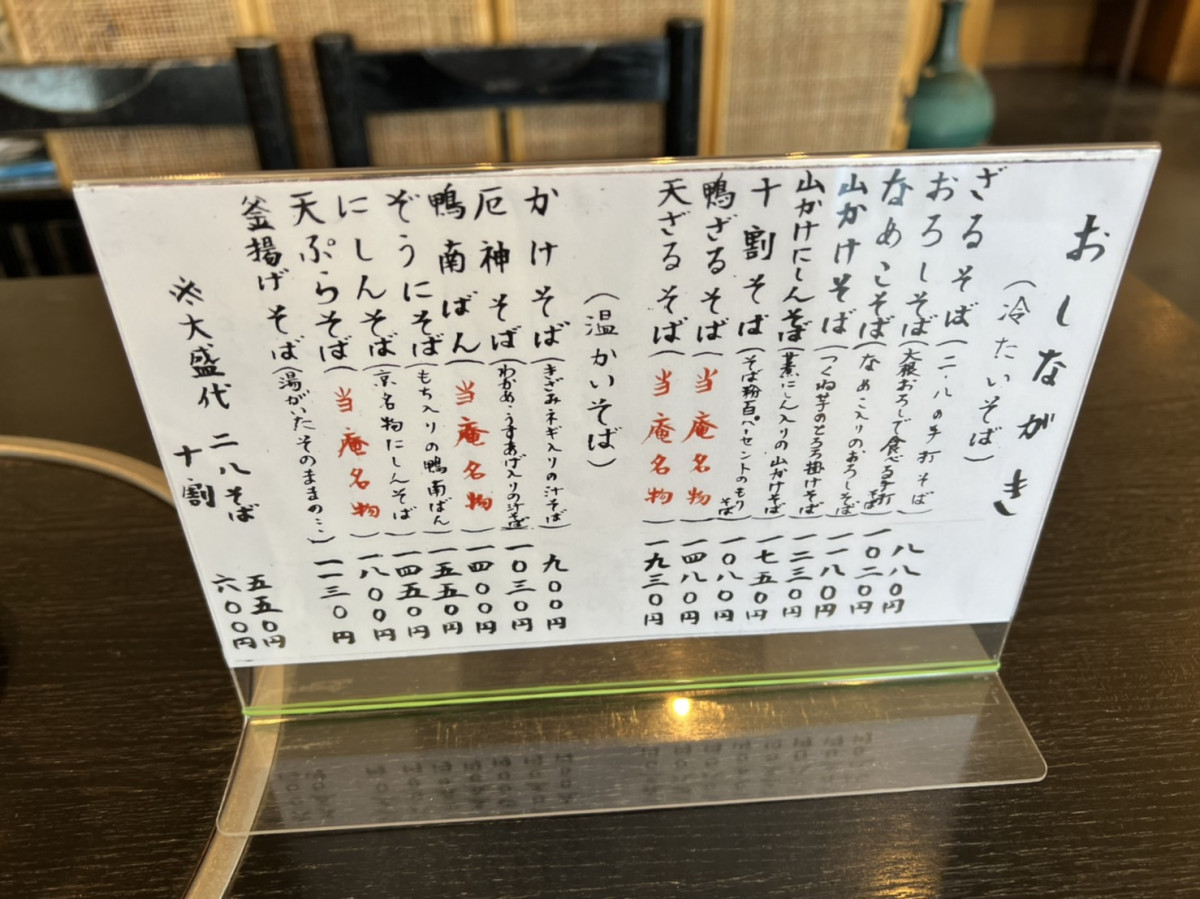 おしながき
(冷たいそば)
ざるそば(二・八の手打そば) 八八〇円
おろしそば(大根おろしで食べる手打そば) 一〇二〇円
なめこそば(なめこ入りのおろしそば) 一一八〇円
山かけそば(つくね芋のとろろ掛けそば) 一二三〇円
山かけにしんそば(煮にしん入りの山かけそば) 一七五〇円
十割そば(そば粉百パーセントのもりそば) 一〇八〇円
鴨ざるそば(当庵名物) 一四八〇円
天ざるそば(当庵名物) 一九三〇円
(温かいそば)
かけそば(きざみネギ入りの汁そば) 九〇〇円
厄神そば(わかめ・うすあげ入りの汁そば) 一〇三〇円
鴨南ばん(当庵名物) 一四〇〇円
ぞうにそば(もち入りの鴨南ばん) 一五五〇円
にしんそば(京名物にしんそば) 一四五〇円
天ぷらそば(当庵名物) 一八〇〇円
釜揚げそば(湯がいたそのままのこゝ) 一一三〇円
※大盛代 二八そば 五五〇円
十割 六〇〇円